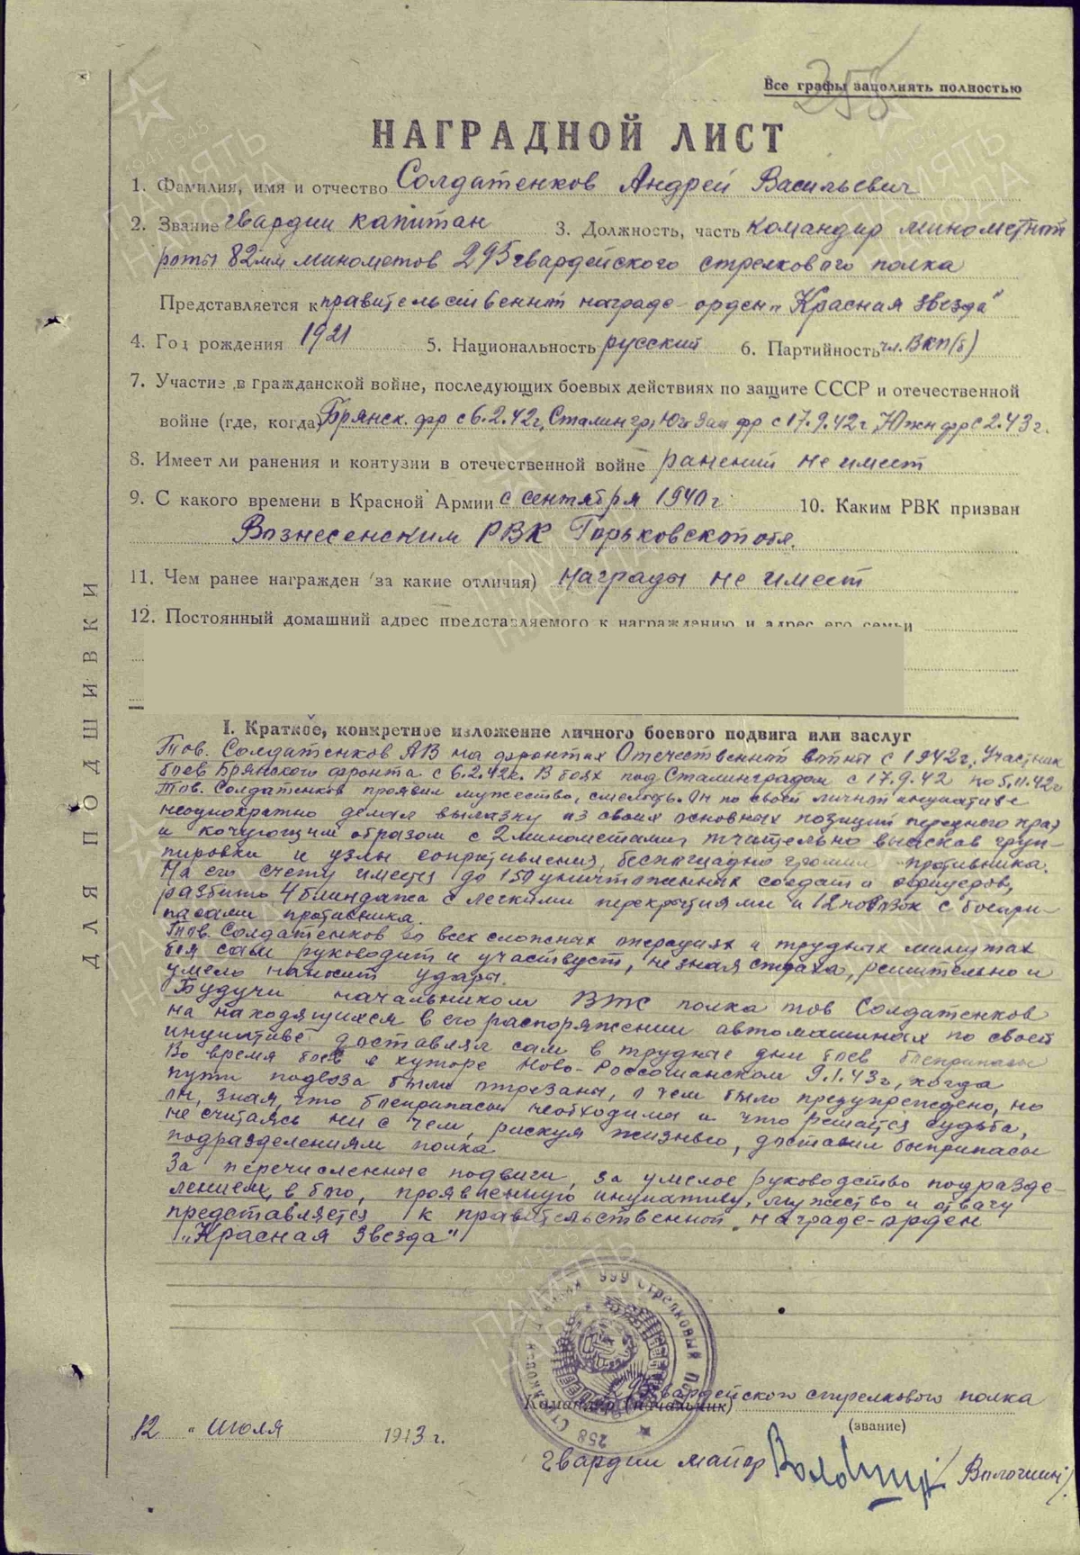 Все графы заполнять полностью
255
НАГРАДНОЙ ЛИСТ
1. Фамилия, имя и отчество Солдатенков Андрей Васильевич
2. Звание гвардии капитан 3. Должность, часть командир минометной
роты 82мм минометов 295 гвардейского стрелкового полка
Представляется к правительственной награде- орден „Красная звезда"
4. Год рождения 1921 5. Национальность русский 6. Партийность чл. ВКП(б)
7. Участие в гражданской войне, последующих боевых действиях по защите СССР и отечественной
войне (где, когда) Брянск. фр с 6.2.42г, Сталингр, Юг Зап фр с 17.9.42г, Южн фр с 2.43г.
8. Имеет ли ранения и контузии в отечественной войне ранений не имеет
9. С какого времени в Красной Армии с сентября 1940г. 10. Каким РВК призван
Вознесенским РВК Горьковской обл.
11. Чем ранее награжден (за какие отличия) награды не имеет
12. Постоянный домашний адрес представляемого к награждению и адрес его семьи
I. Краткое, конкретное изложение личного боевого подвига или заслуг
Тов. Солдатенков АВ на фронтах Отечественной войны с 1942г, Участник
боев Брянского фронта с 6.2.42г. В боях под Сталинградом с 17.9.42 по 5.11.42г
Тов. Солдатенков проявил мужество, смелость. Он по своей личной инициативе
неоднократно делал вылазку из своих основных позиций переднего края
и кочующим образом с 2 минометами, тчательно выискав груп-
пировки и узлы сопротивления, беспощадно громил противника.
На его счету имеется до 150 уничтоженных солдат и офицеров,
разбито 4 блиндажа с легкими перекрытиями и 12 повозок с боепри-
пасами противника.
Тов. Солдатенков во всех сложных операциях и трудных минутах
боя сам руководит и участвует, не зная страха, решительно и
умело наносит удары.
Будучи начальником ВТС полка тов Солдатенков
на находящихся в его распоряжении автомашинах по своей
инициативе доставлял сам в трудные дни боев боеприпасы
Во время боев в хуторе Ново-Россошанском 9.1.43г, когда
пути подвоза были отрезаны, о чем было предупреждено, но
он, зная, что боеприпасы необходимы и что решается судьба,
не считаясь ни с чем, рискуя жизнью, доставил боеприпасы
подразделениям полка
За перечисленные подвиги, за умелое руководство подразде-
лением в бою, проявленную инициативу, мужество и отвагу
представляется к правительственной награде-орден
„Красная Звезда"
999 Стрелковый Полк
258 Стрелковая
гвардейского стрелкового полка
Командир (начальник)
(звание)
12 „ июля 1943 г.
Гвардии майор (Волошин)
ДЛЯ ПОДШИВКИ
ПАМЯТЬ НАРОДА
1941-1945